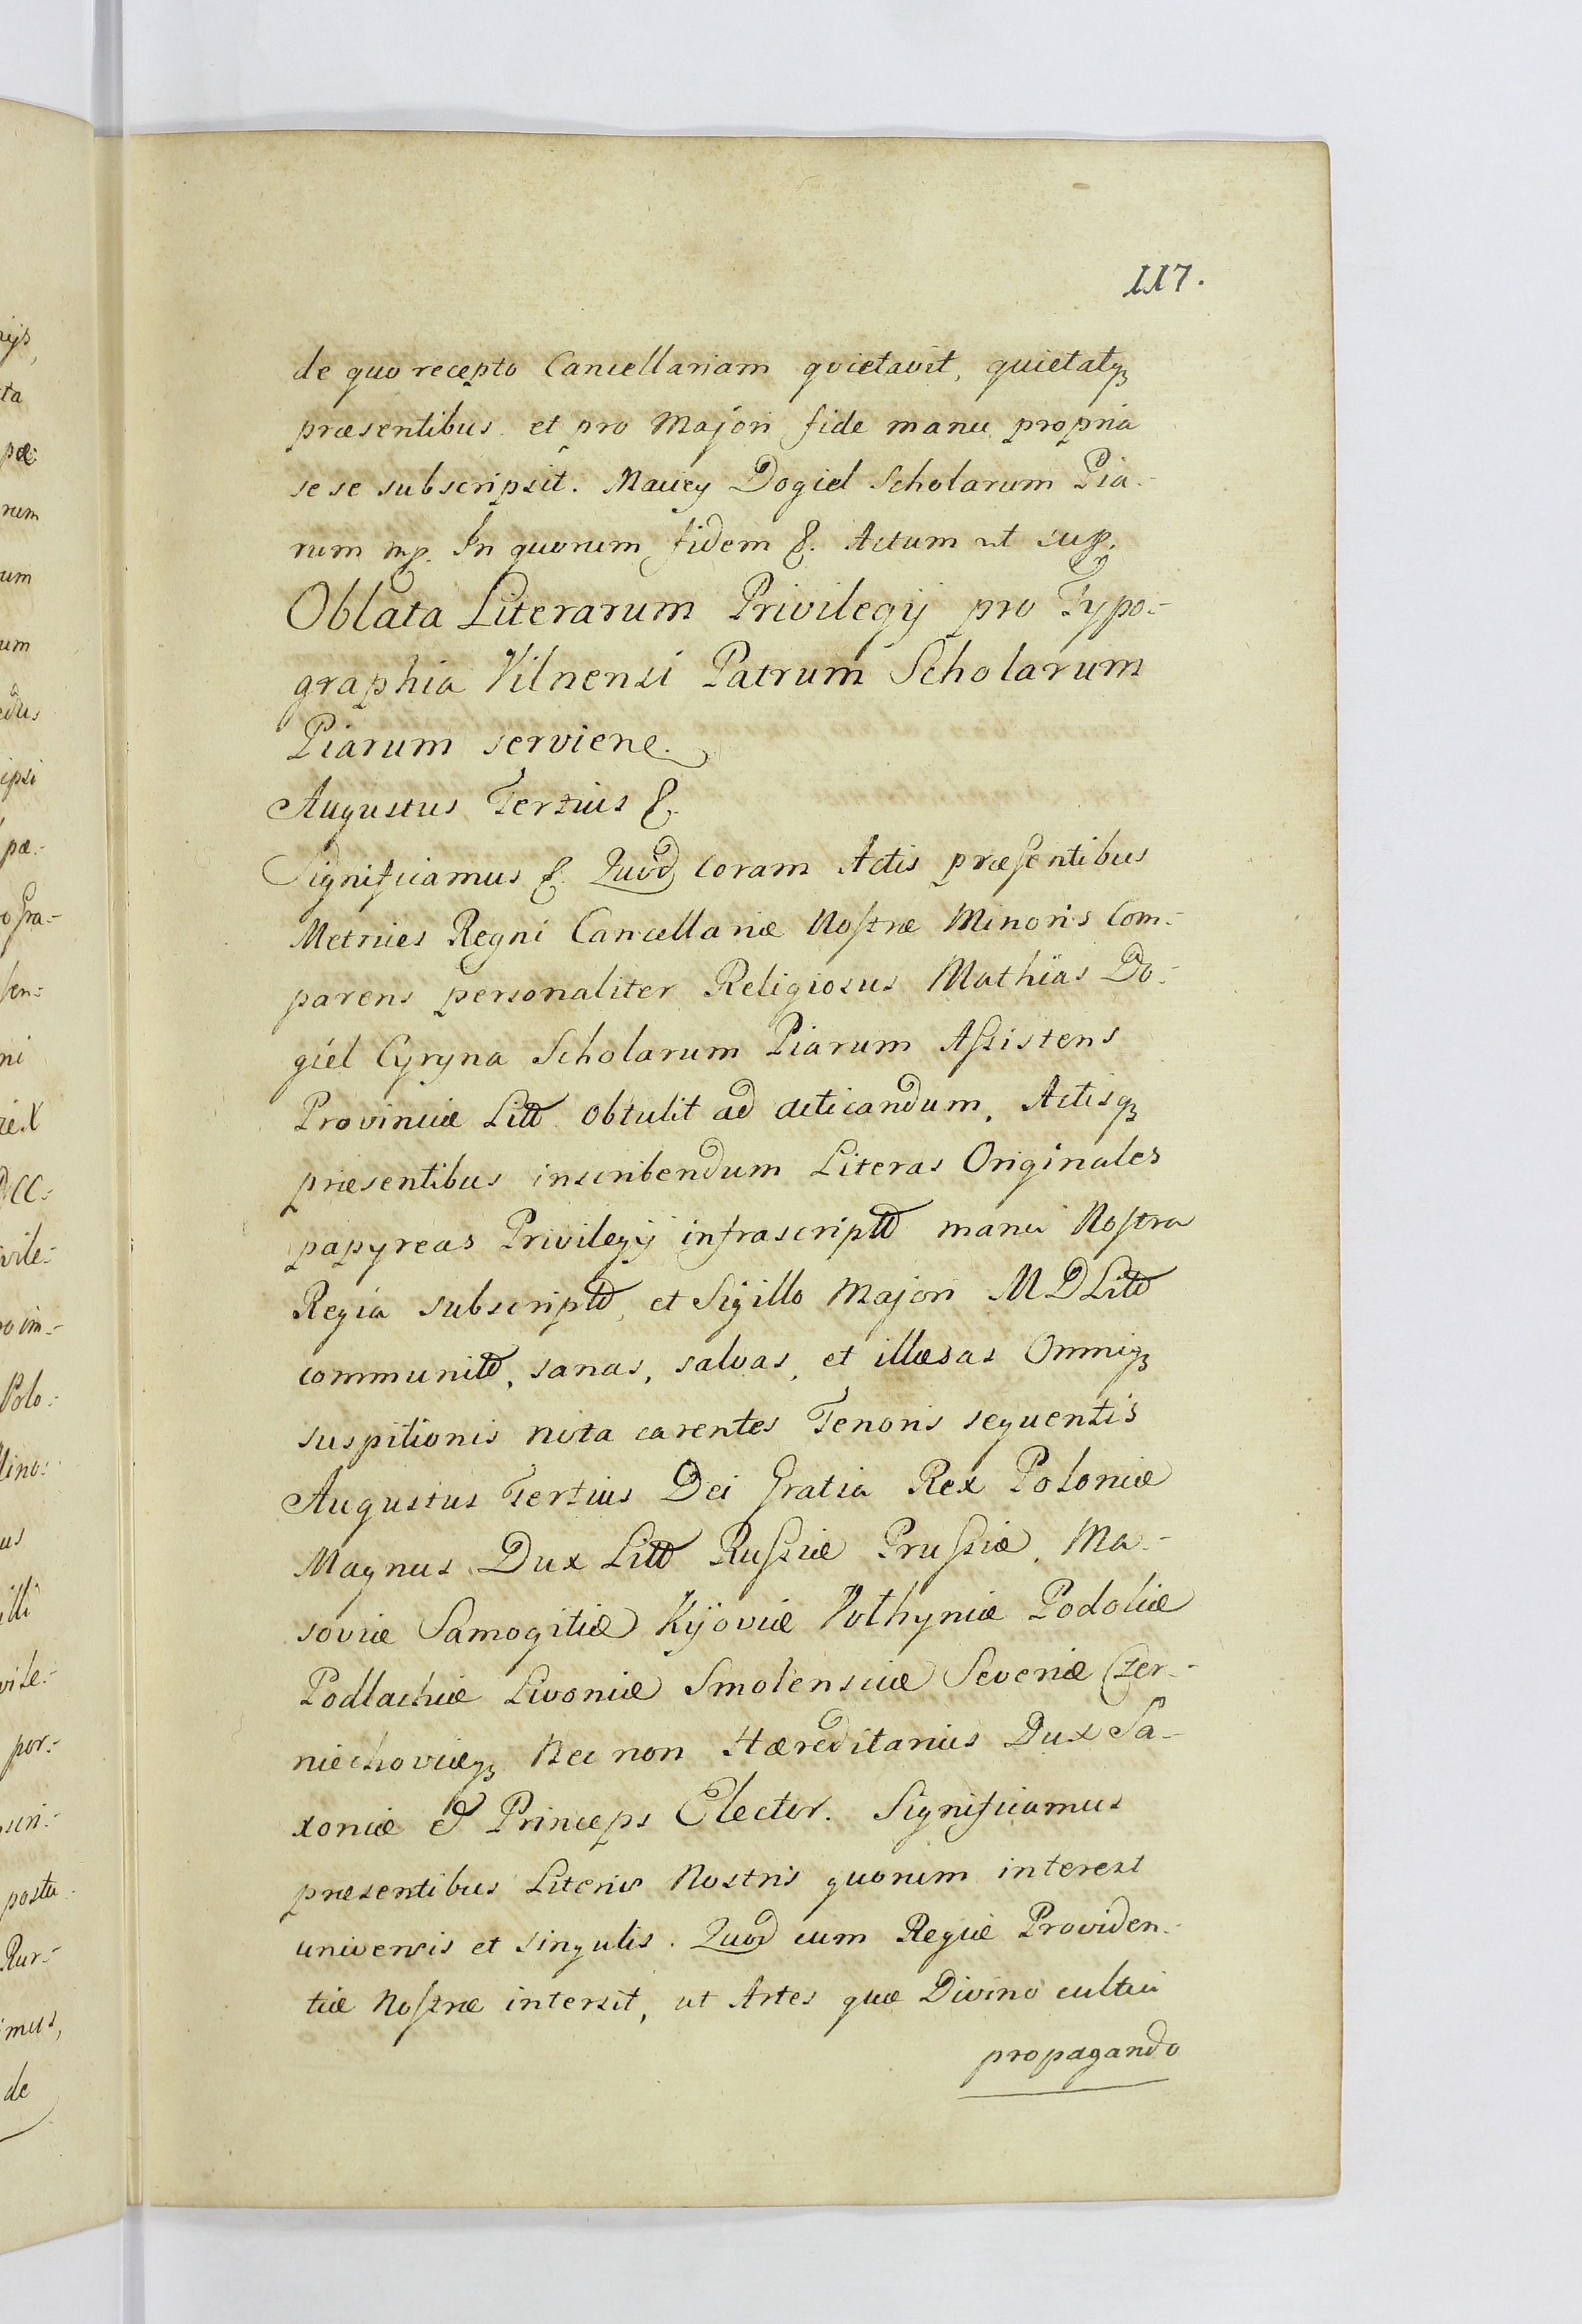 117.
de quo recepto Cancellariam quietavit, quietatq3
præsentibus et pro Majori fide manu propria
se se subscripsit. Maciey Dogiel Scholarum Pia-
rum mp. In quorum fidem &. Actum ut sup.
Oblata Literarum Privilegij pro Typo-
graphia Vilnensi Patrum Scholarum
Piarum serviene.
Augustus Tertius &.
Significamus &. Quod coram Actis præsentibus
Metrices Regni Cancellariæ Nostræ Minoris Com-
parens personaliter Religiosus Mathias Do-
giel Cyryna Scholarum Piarum Assistens
Provinciæ Litt obtulit ad acticandum, Actisq3
præsentibus inscribendum Literas Originales
papyreas Privilegij infrascriptt manu Nostra
Regia subscriptt, et Sigillo Majori M D Litt
communitt, sanas, salvas, et illæsas Omniq3
suspitionis nota carentes Tenoris sequentis
Augustus Tertius Dei Gratia Rex Poloniæ
Magnus Dux Litt Russiæ Prussiæ, Ma-
soviæ Samogitiæ Kijoviæ Volhyniæ Podoliæ
Podlachiæ Livoniæ Smolensciæ Severiæ Czer-
niechoviæq3 Nec non Hæreditarius Dux Sa-
xoniæ & Princeps Elector. Significamus
præsentibus Literis Nostris quorum interest
universis et singulis. Quod cum Regiæ Providen-
tiæ Nostræ intersit, ut Artes quæ Divino cultui
propagando